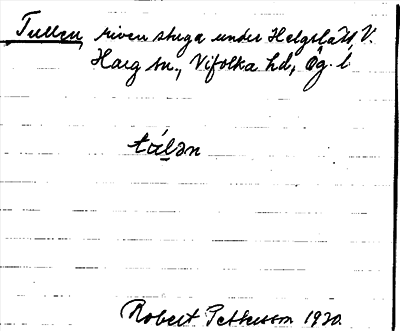 Tullen, riven stuga under Helgslätt, V.
Harg sn., Vifolka hd, Ög. l
tálən
Robert Pettersson 1930.